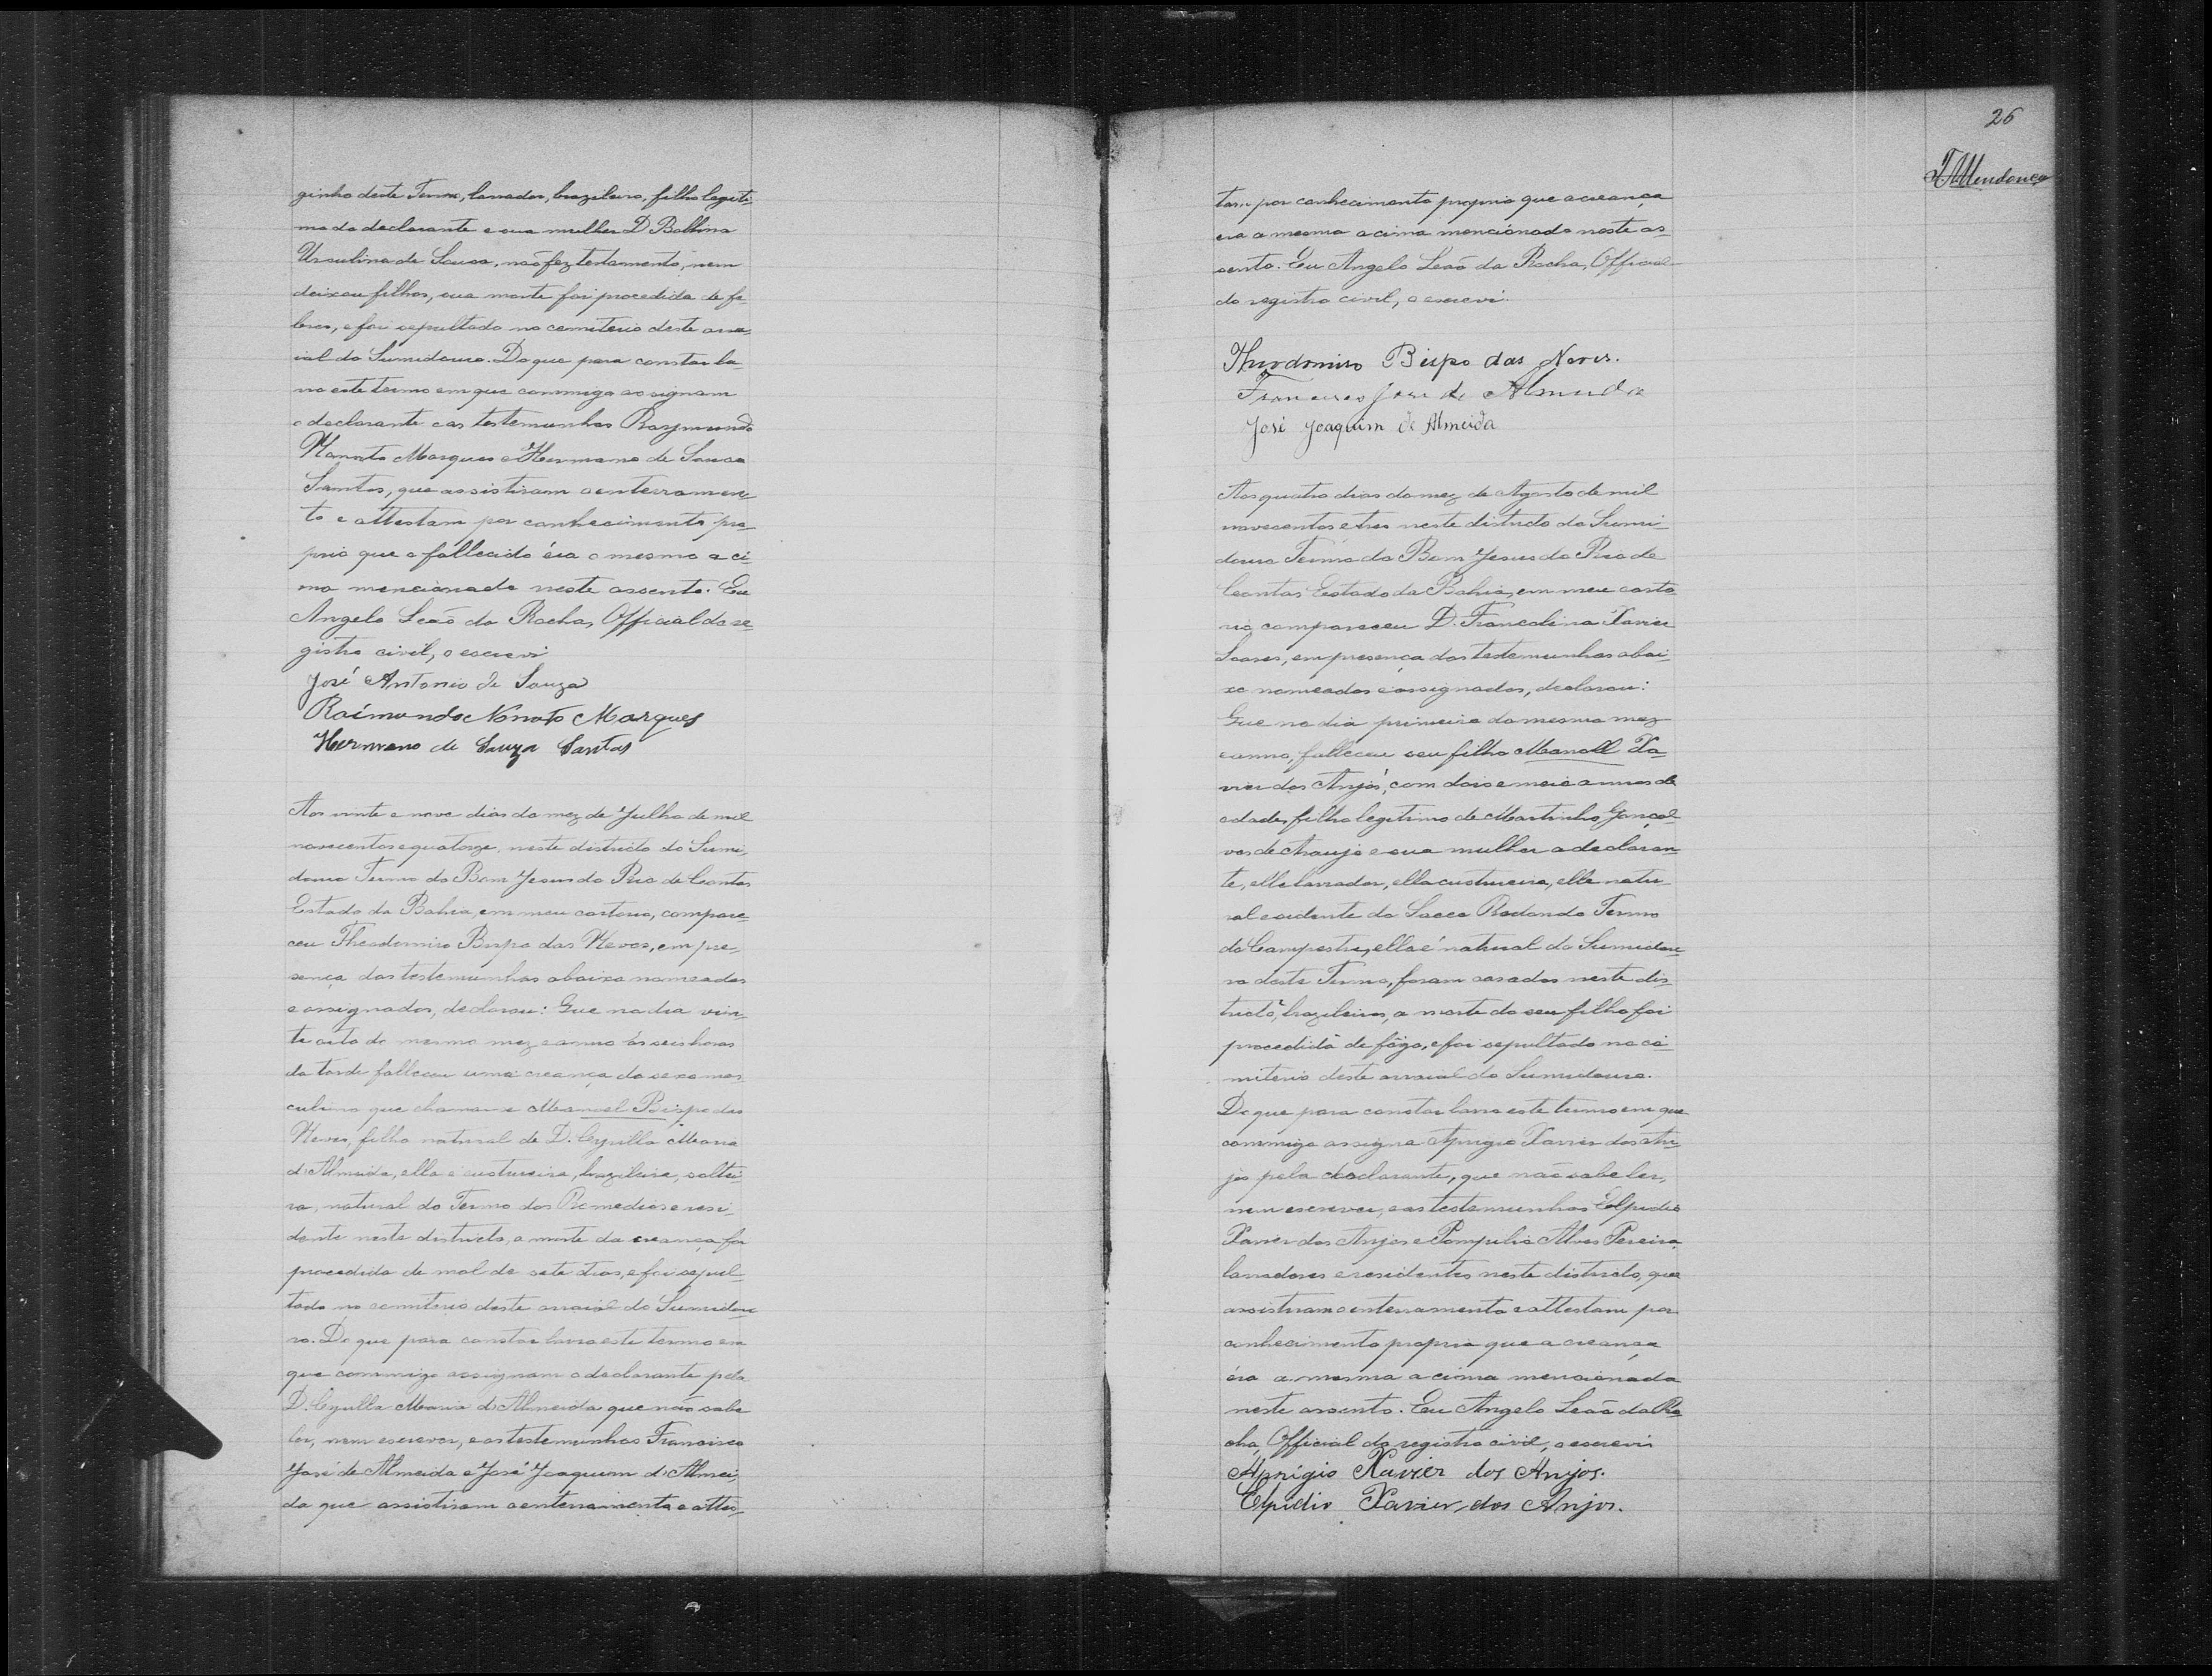 ginho deste Termo, lavrador, brazileiro, filho legiti-
mo do declarante e sua mulher D. Balbina
Ursulina de Sousa, não fez testamento, nem
deixou filhos, sua morte foi procedida de fe-
bres, e foi sepultado no cemiterio deste arra-
ial do Sumidouro. Do que para constar la-
vro este termo em que commigo assignam
o declarante e as testemunhas Raymundo
Nonato Marques e Hermano de Sousa
Santos, que assistiram o enterramen-
to e attestam por conhecimento pro-
prio que o fallecido éra o mesmo a ci-
ma mencionado neste assento. Eu
Angelo Leão da Rocha, Official do re-
gistro civil, o escrevi
José Antonio de Souza
Raimundo Nonato Marques
Hermano de Souza Santos
Aos vinte e nove dias do mez de Julho de mil
novecentos e quatorze, neste districto do Sumi-
douro Termo do Bom Jesus do Rio de Contas
Estado da Bahia, em meu cartorio, compare-
ceu Theodomiro Bispo das Neves, em pre-
sença das testemunhas abaixo nomeadas
e assignadas, declarou: Que no dia vin-
te oito do mesmo mez e anno ás seis horas
da tarde falleceu uma creança do sexo mas-
culino que chamava-se Manoel Bispo das
Neves, filho natural de D. Cyrilla Maria
d'Almeida, ella é custureira, brazileira, soltei-
ra, natural do Termo dos Remedios e resi-
dente neste districto, a morte da creança foi
procedida de mal de sete dias, e foi sepul-
tado no cemiterio deste arraial do Sumidou-
ro. Do que para constar lavro este termo em
que commigo assignam o declarante pela
D. Cyrilla Maria d'Almeida que não sabe
ler, nem escrever, e as testemunhas Francisco
José de Almeida e José Joaquim d'Almei-
da que assistiram o enterramento e attes-
26
T. Mendonça
tam por conhecimento proprio que a creança
era a mesma acima mencionada neste as-
sento. Eu Angelo Leão da Rocha, Official
do registro civil, o escrevi.
Theodomiro Bispo das Neves.
Francisco José de Almeida
José Joaquim de Almeida
Aos quatro dias do mez de Agosto de mil
novecentos e tres neste districto do Sumi-
douro Termo do Bom Jesus do Rio de
Contas Estado da Bahia, em meu carto-
rio, compareceu D. Francelina Xavier
Soares, em presença das testemunhas abai-
xo nomeadas e assignadas, declarou:
Que no dia primeiro do mesmo mez
e anno, falleceu seu filho Manoell Xa-
vier dos Anjos, com dois e meio annos de
edade, filho legitimo de Martinho Gonçal-
ves de Araujo e sua mulher a declaran-
te, elle lavrador, ella custureira, elle natu-
ral e sidente do Sacco Redondo Termo
do Campestre, ella é natural do Sumidou-
ro deste Termo, foram casados neste dis-
tricto, brazileiros, a morte do seu filho foi
procedida de fôgo, e foi sepultado no ce-
miterio deste arraial do Sumidouro.
Do que para constar lavro este termo em que
commigo assigna Aprigio Xavier dos An-
jos pela declarante, que não sabe ler,
nem escrever, e as testemunhas Elpidio
Xavier dos Anjos e Pompilio Alves Pereira,
lavradores e residentes neste districto, que
assistiram o enterramento e attestam por
conhecimento proprio que a creança
éra a mesma a cima mencionada
neste assento. Eu Angelo Leão da Ro-
cha, Official do registro civil, o escrevi
Aprigio Xavier dos Anjos.
Elpidio Xavier dos Anjos.